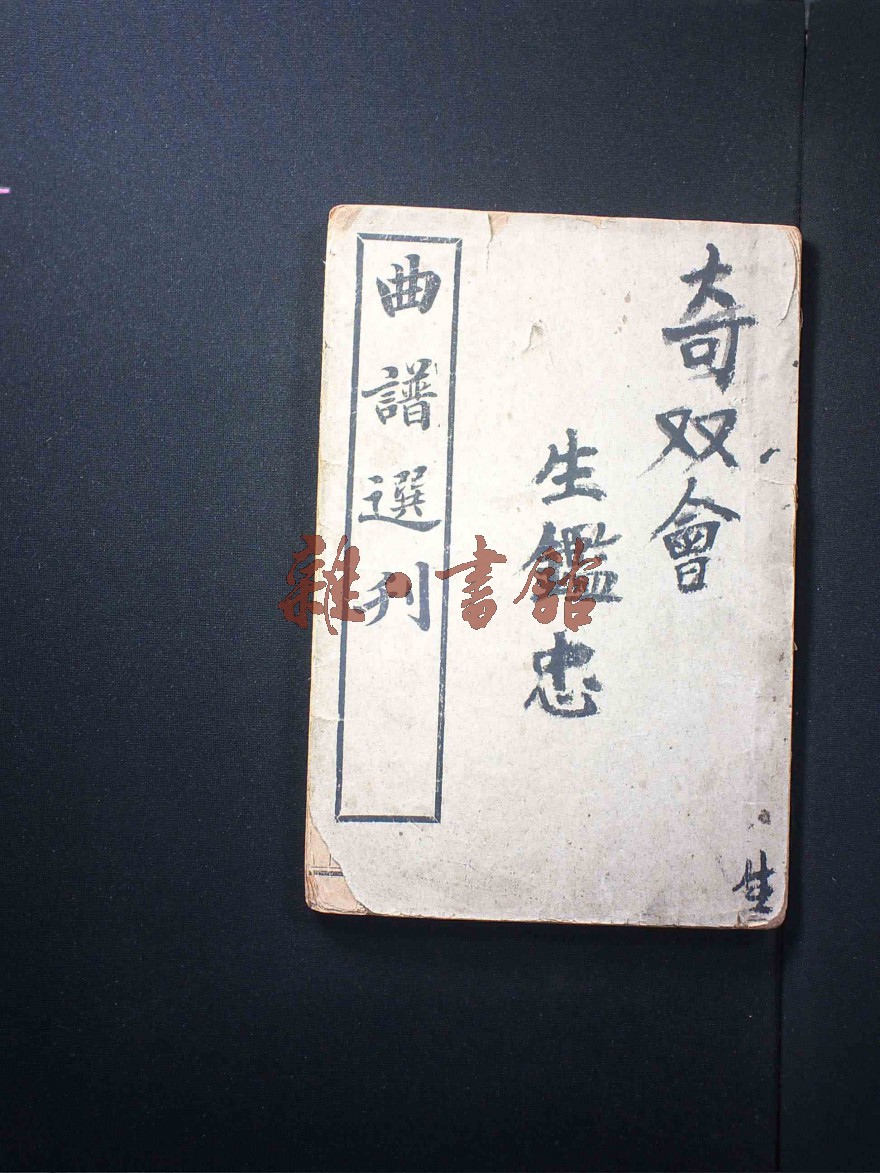 奇双會
生鑑忠
生
曲譜選刊
雜書館